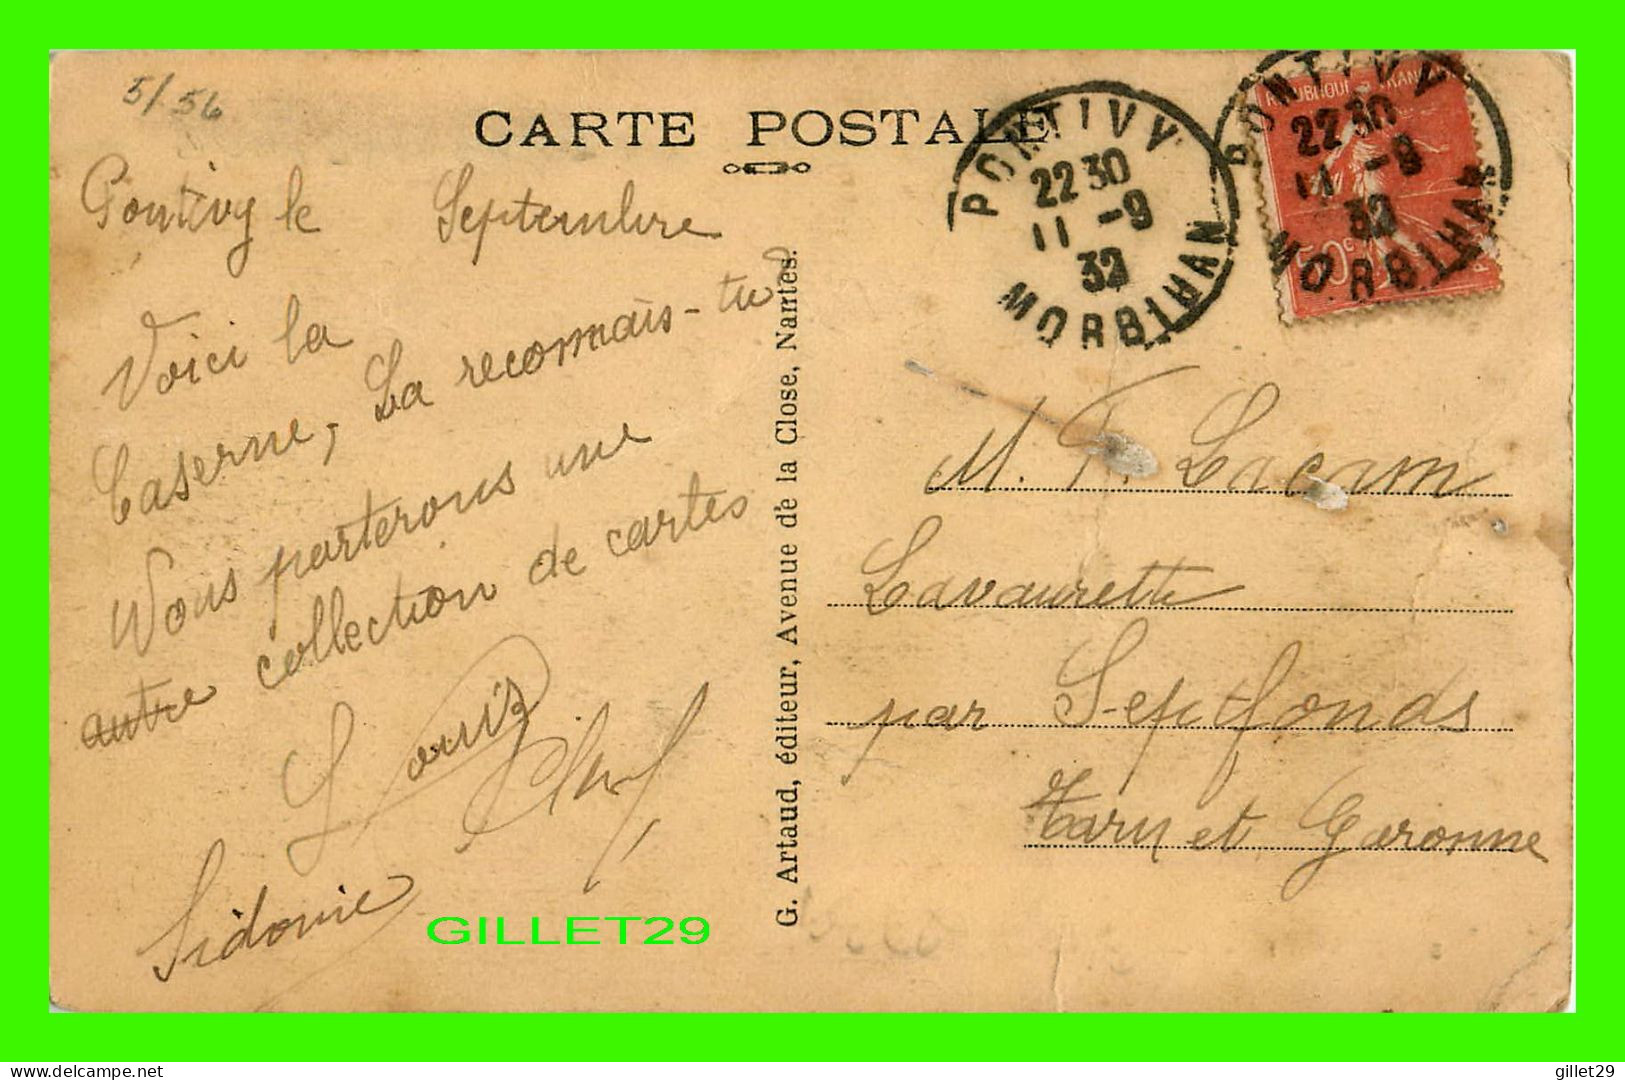 5/56
CARTE POSTALE
Pontivy le Septembre
Voici la
Caserne, La reconnais-tu?
Nous porterons une
autre collection de cartes
Louis
Sidonie
G. Artaud, éditeur, Avenue de la Close, Nantes.
PONTIVY
22 30
11 -9
32
MORBIHAN
PONTIVY
22 30
11 -9
32
MORBIHAN
REPUBLIQUE FRANCAISE
50c
M. F. Lacam
Lavaurette
par Septfonds
Tarn et Garonne
GILLET29
delcampe.net
gillet29